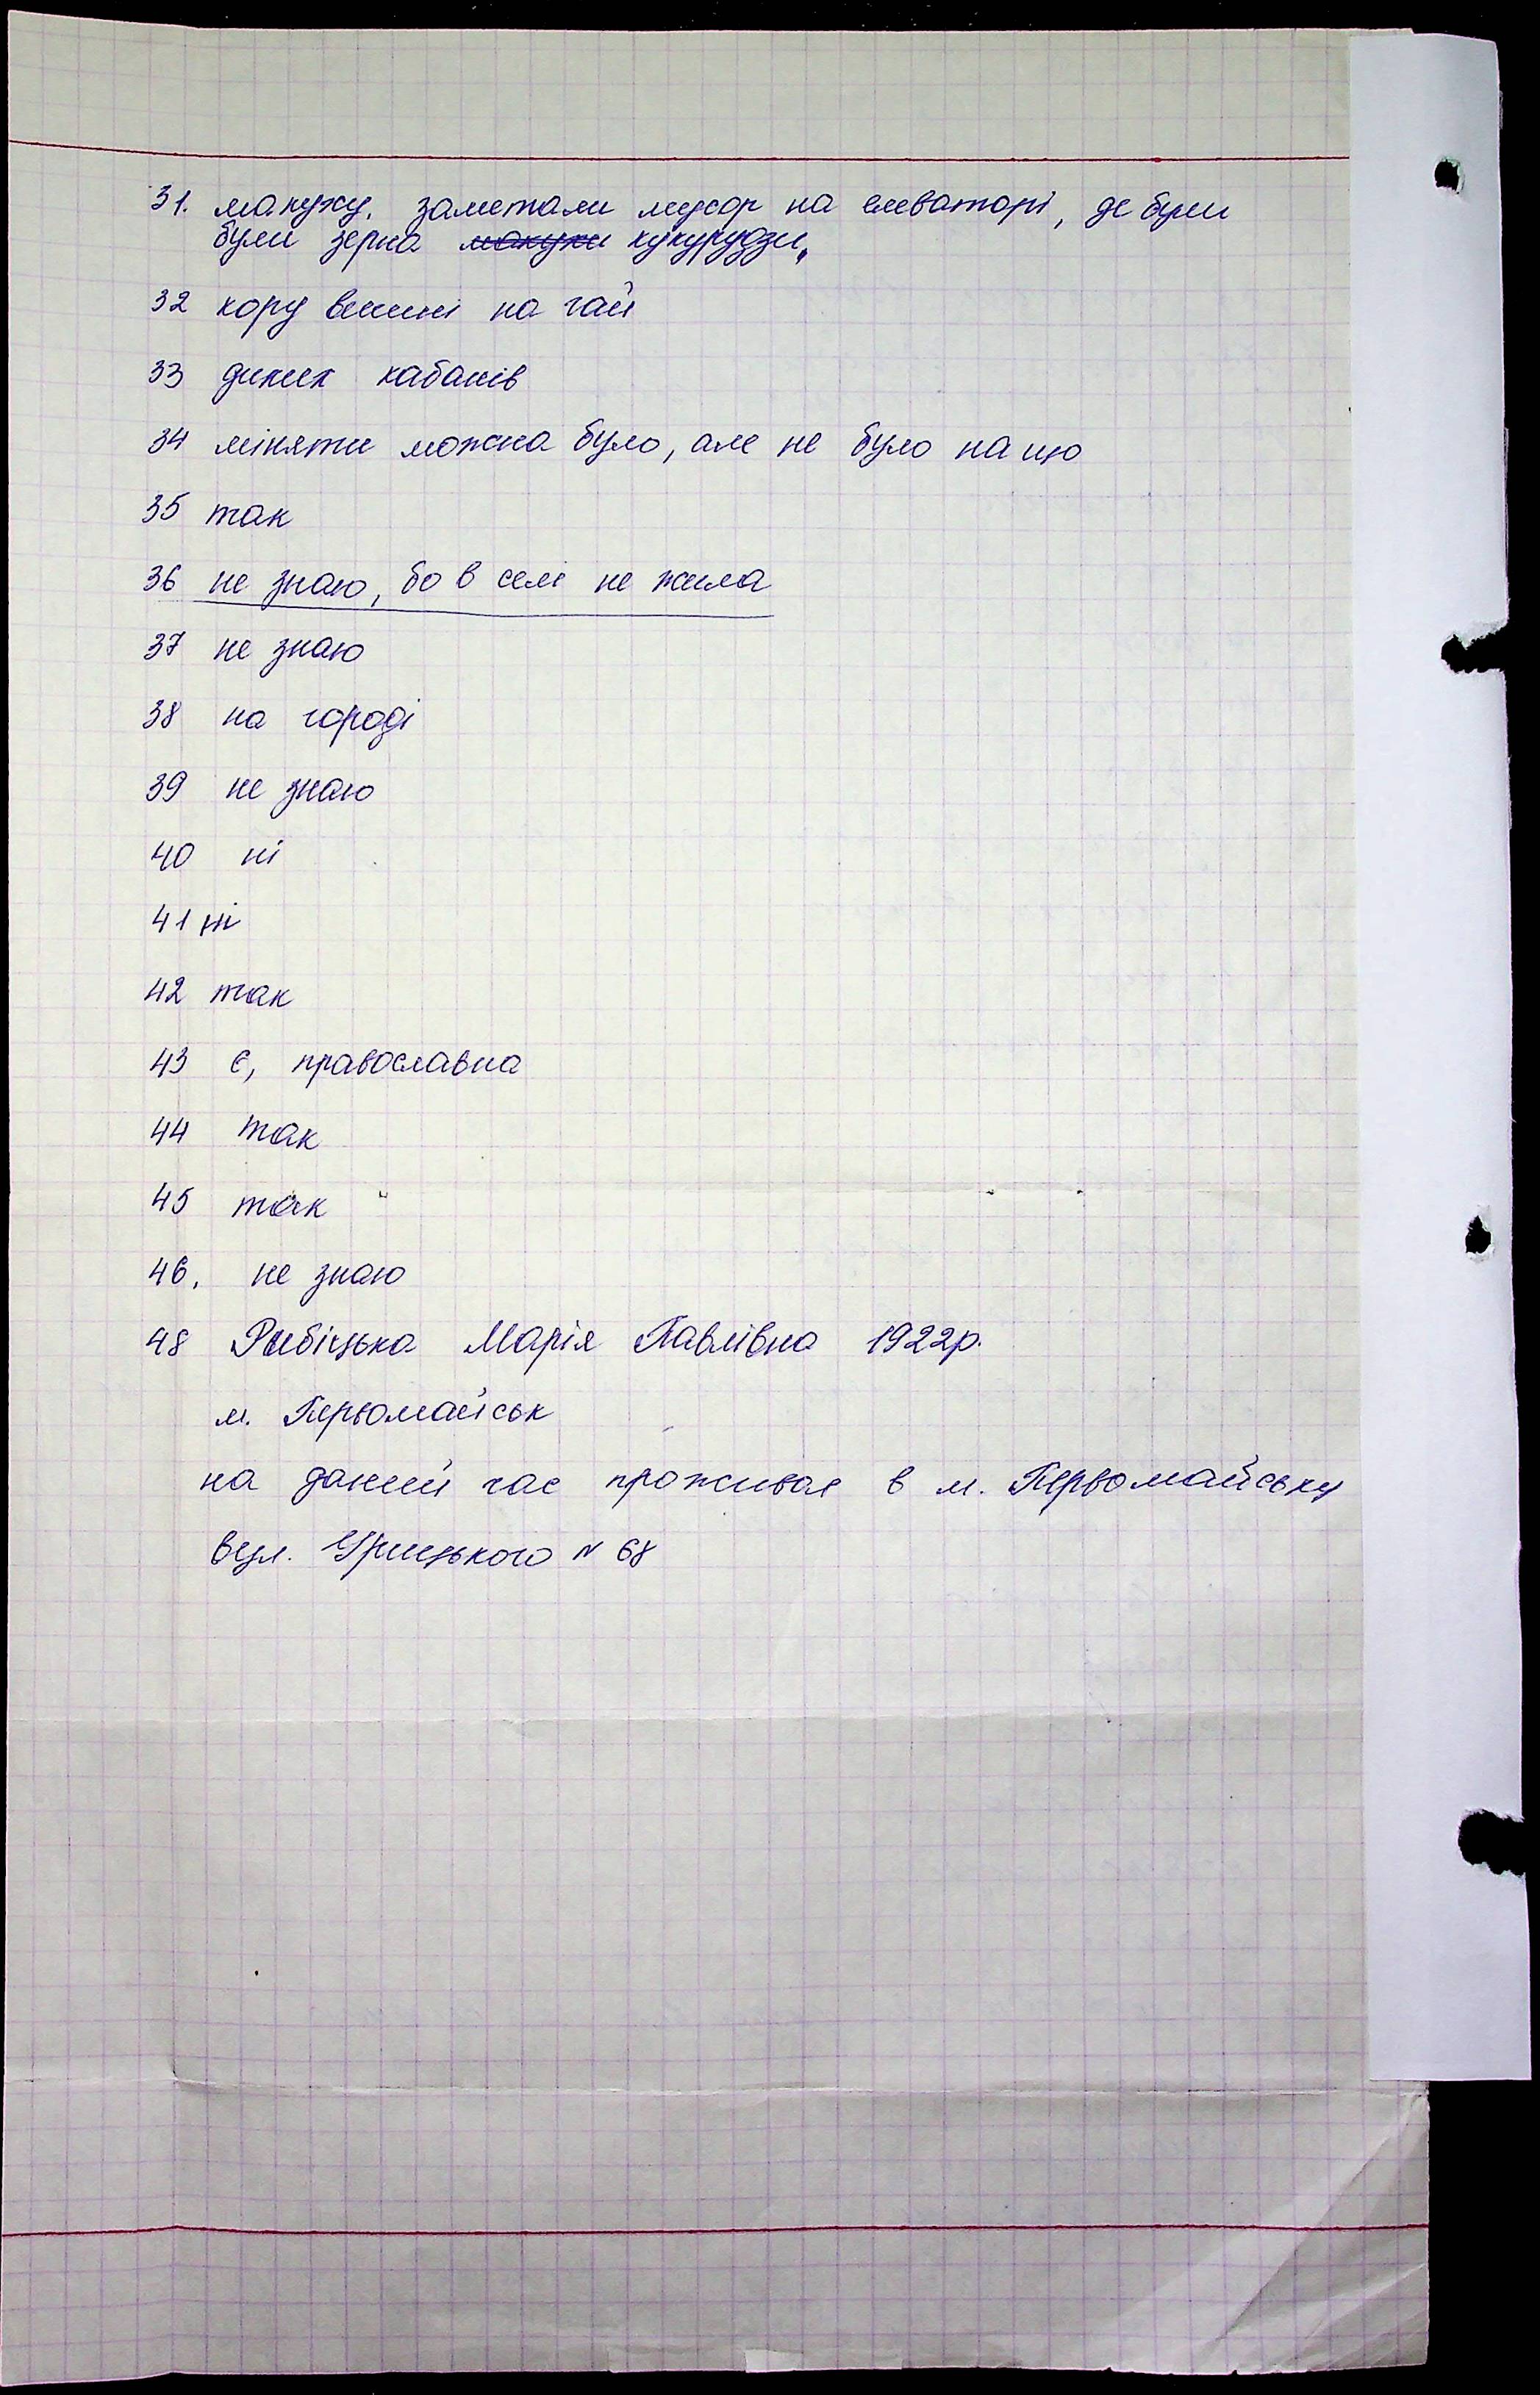 31. макуху, заметали мусор на елеваторі, де були
були зерна макухи кукурудзи.
32 кору вишні на чай
33 диких кабанів
34 міняти можна було, але не було на що
35 так
36 не знаю, бо в селі не жила
37 не знаю
38 на городі
39 не знаю
40 ні
41 ні
42 так
43 є, православна
44 так
45 так
46. не знаю
48 Рибіцька Марія Павлівна 1922р.
м. Первомайськ
на даний час проживає в м. Первомайську
вул. Урицького № 68